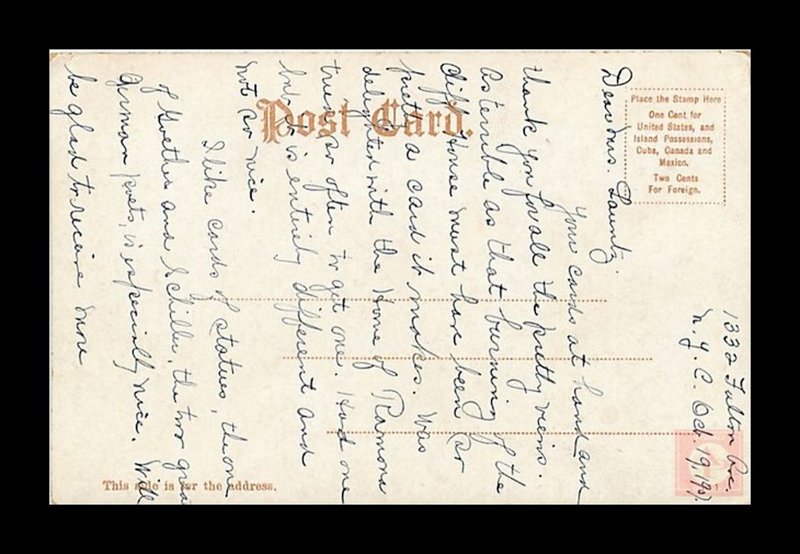 Post Card.
Place the Stamp Here
One Cent for
United States, and
Island Possessions,
Cuba, Canada and
Mexico.
Two Cents
For Foreign.
This side is for the address.
1332 Fulton Ave.
N.Y.C. Oct. 19, 1907
Dear Mrs. Launtz,
Your cards at hand and
thank you for all the pretty views.
As terrible as that burning of the
Cliff House must have been so
pretty a card it makes. Was
delighted with the Home of Ramona
tried so often to get one. Had one
but it is entirely different and
not so nice.
I like cards of statues, the one
of Goethe and Schiller, the two great
German poets, is especially nice. Will
be glad to receive more